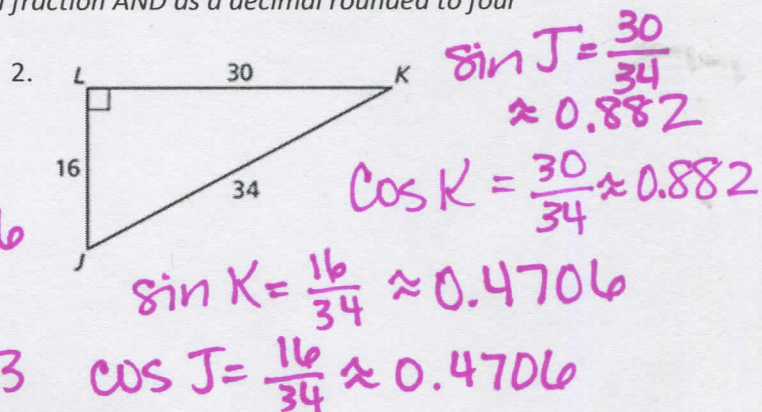 fraction AND as a decimal rounded to four
2. L 30 K
16
34
J
sin J = 30/34
≈ 0.882
cos K = 30/34 ≈ 0.882
6
sin K = 16/34 ≈ 0.4706
3 cos J = 16/34 ≈ 0.4706